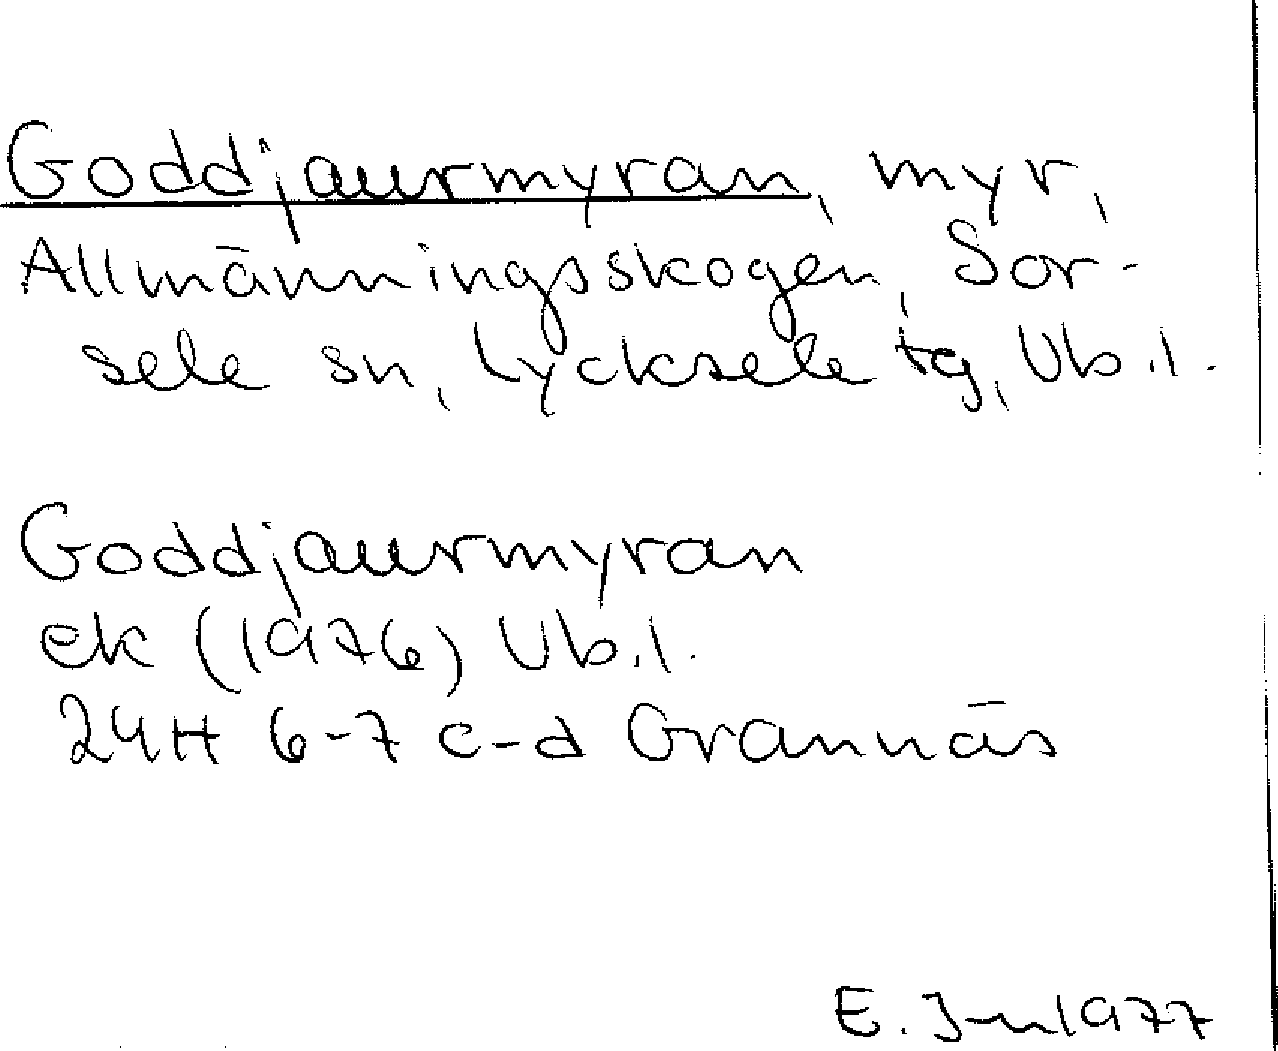 Goddjaurmyran, myr,
Allmänningsskogen, Sor-
sele sn, Lycksele tg, Vb.l.
Goddjaurmyran
ek (1976) Vb.l.
24H 6-7 c-d Grannäs
E. 1977